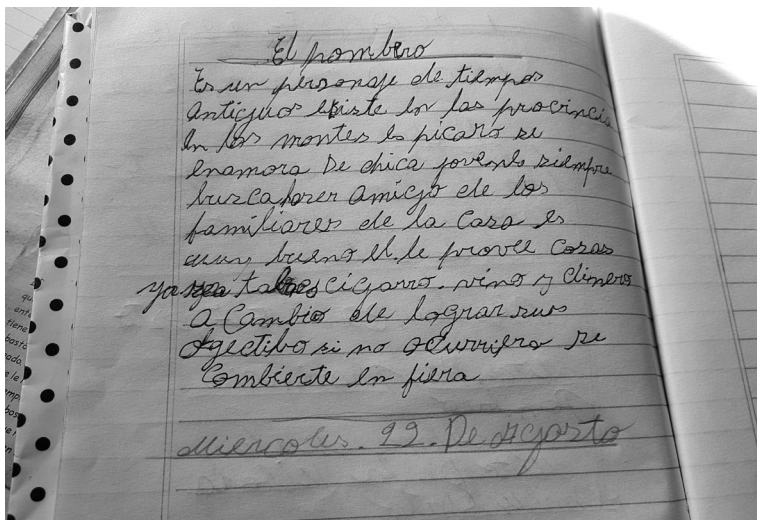 El pombero
Es un personaje de tiempos
antiguos existe en las procincia
En los montes es picaro se
enamora De chica jovenes siempre
buzca hazer amigo de los
familiares de la casa es
muy bueno el. le provee cosas
ya sea cigarro. vino y dinero
a Cambio de lograr sus
ogectibo si no ocurriera se
combierte en fiera
Miercoles. 22. De Agosto
qu
ent
tiene
basta